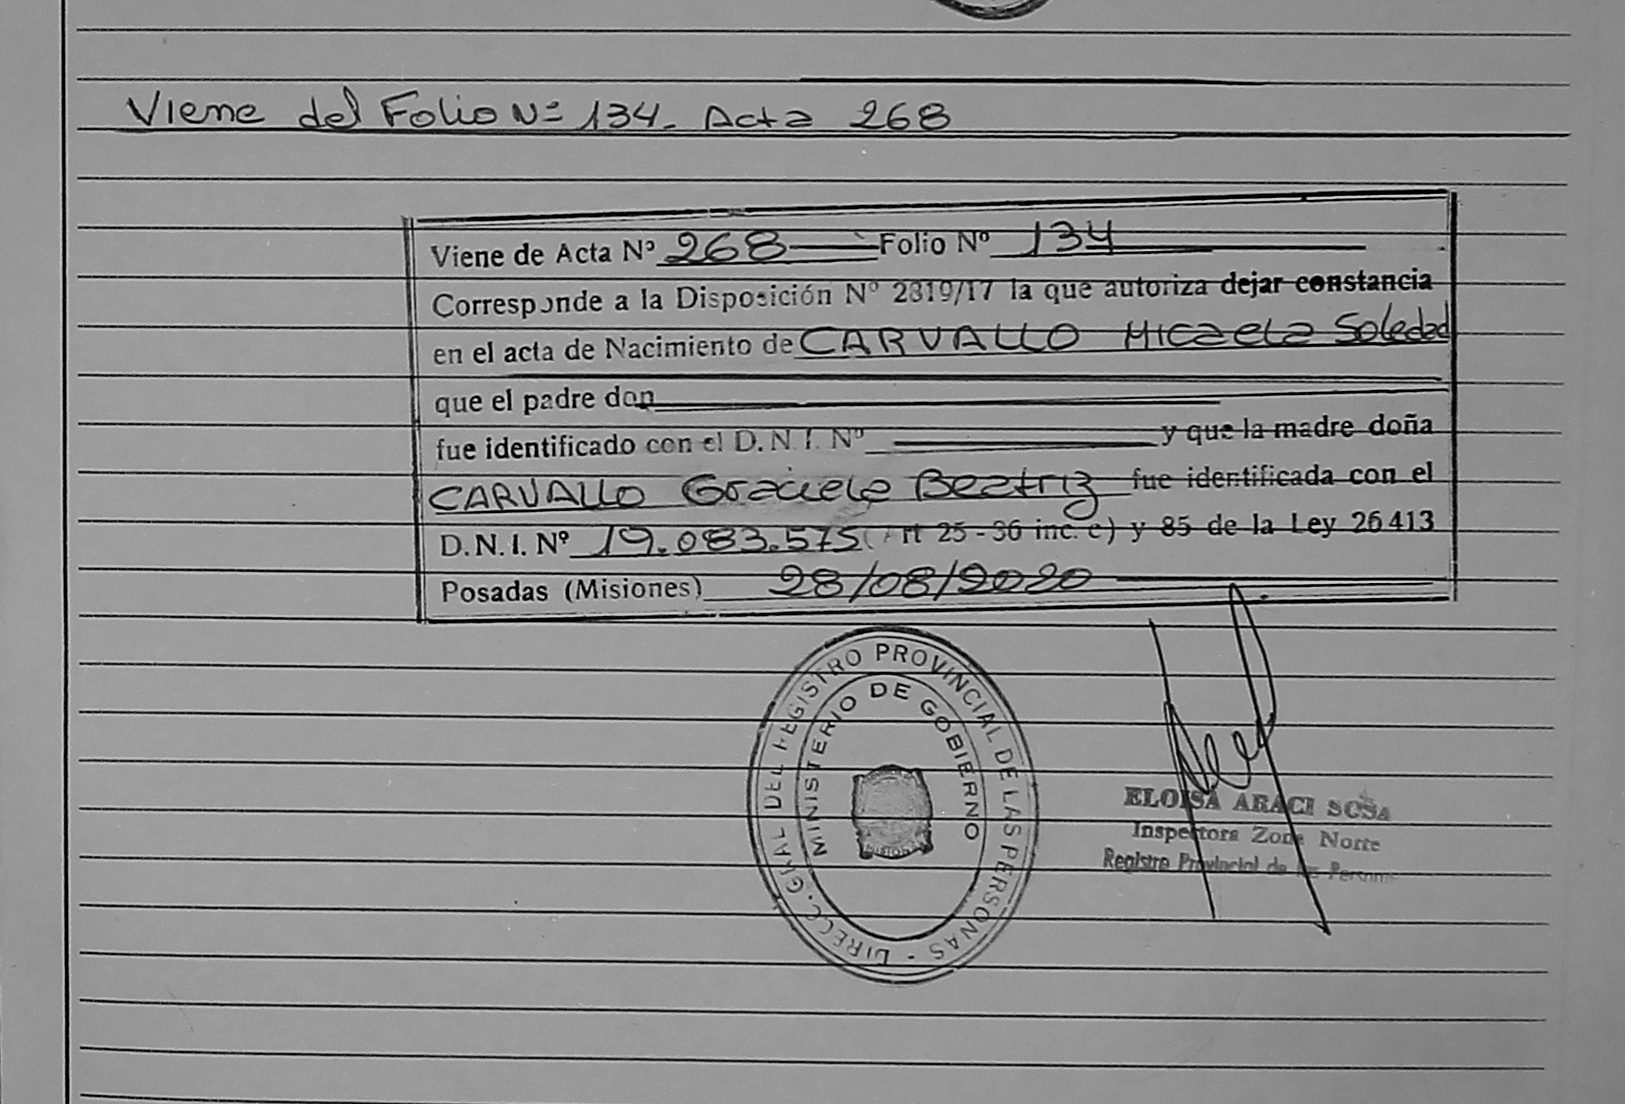 Viene del Folio Nº 134. Acta 268
Viene de Acta Nº 268 Folio Nº 134
Corresponde a la Disposición Nº 2319/17 la que autoriza dejar constancia
en el acta de Nacimiento de CARVALLO Micaela Soledad
que el padre don
fue identificado con el D.N.I. Nº y que la madre doña
CARVALLO Graciela Beatriz fue identificada con el
D.N.I. Nº 19.083.575 (Art 25 - 36 inc. c) y 85 de la Ley 26413
Posadas (Misiones) 28/08/2020
DIRECC. GRAL DEL REGISTRO PROVINCIAL DE LAS PERSONAS -
MINISTERIO DE GOBIERNO
ELOISA ARACI SOSA
Inspectora Zona Norte
Registro Provincial de las Personas